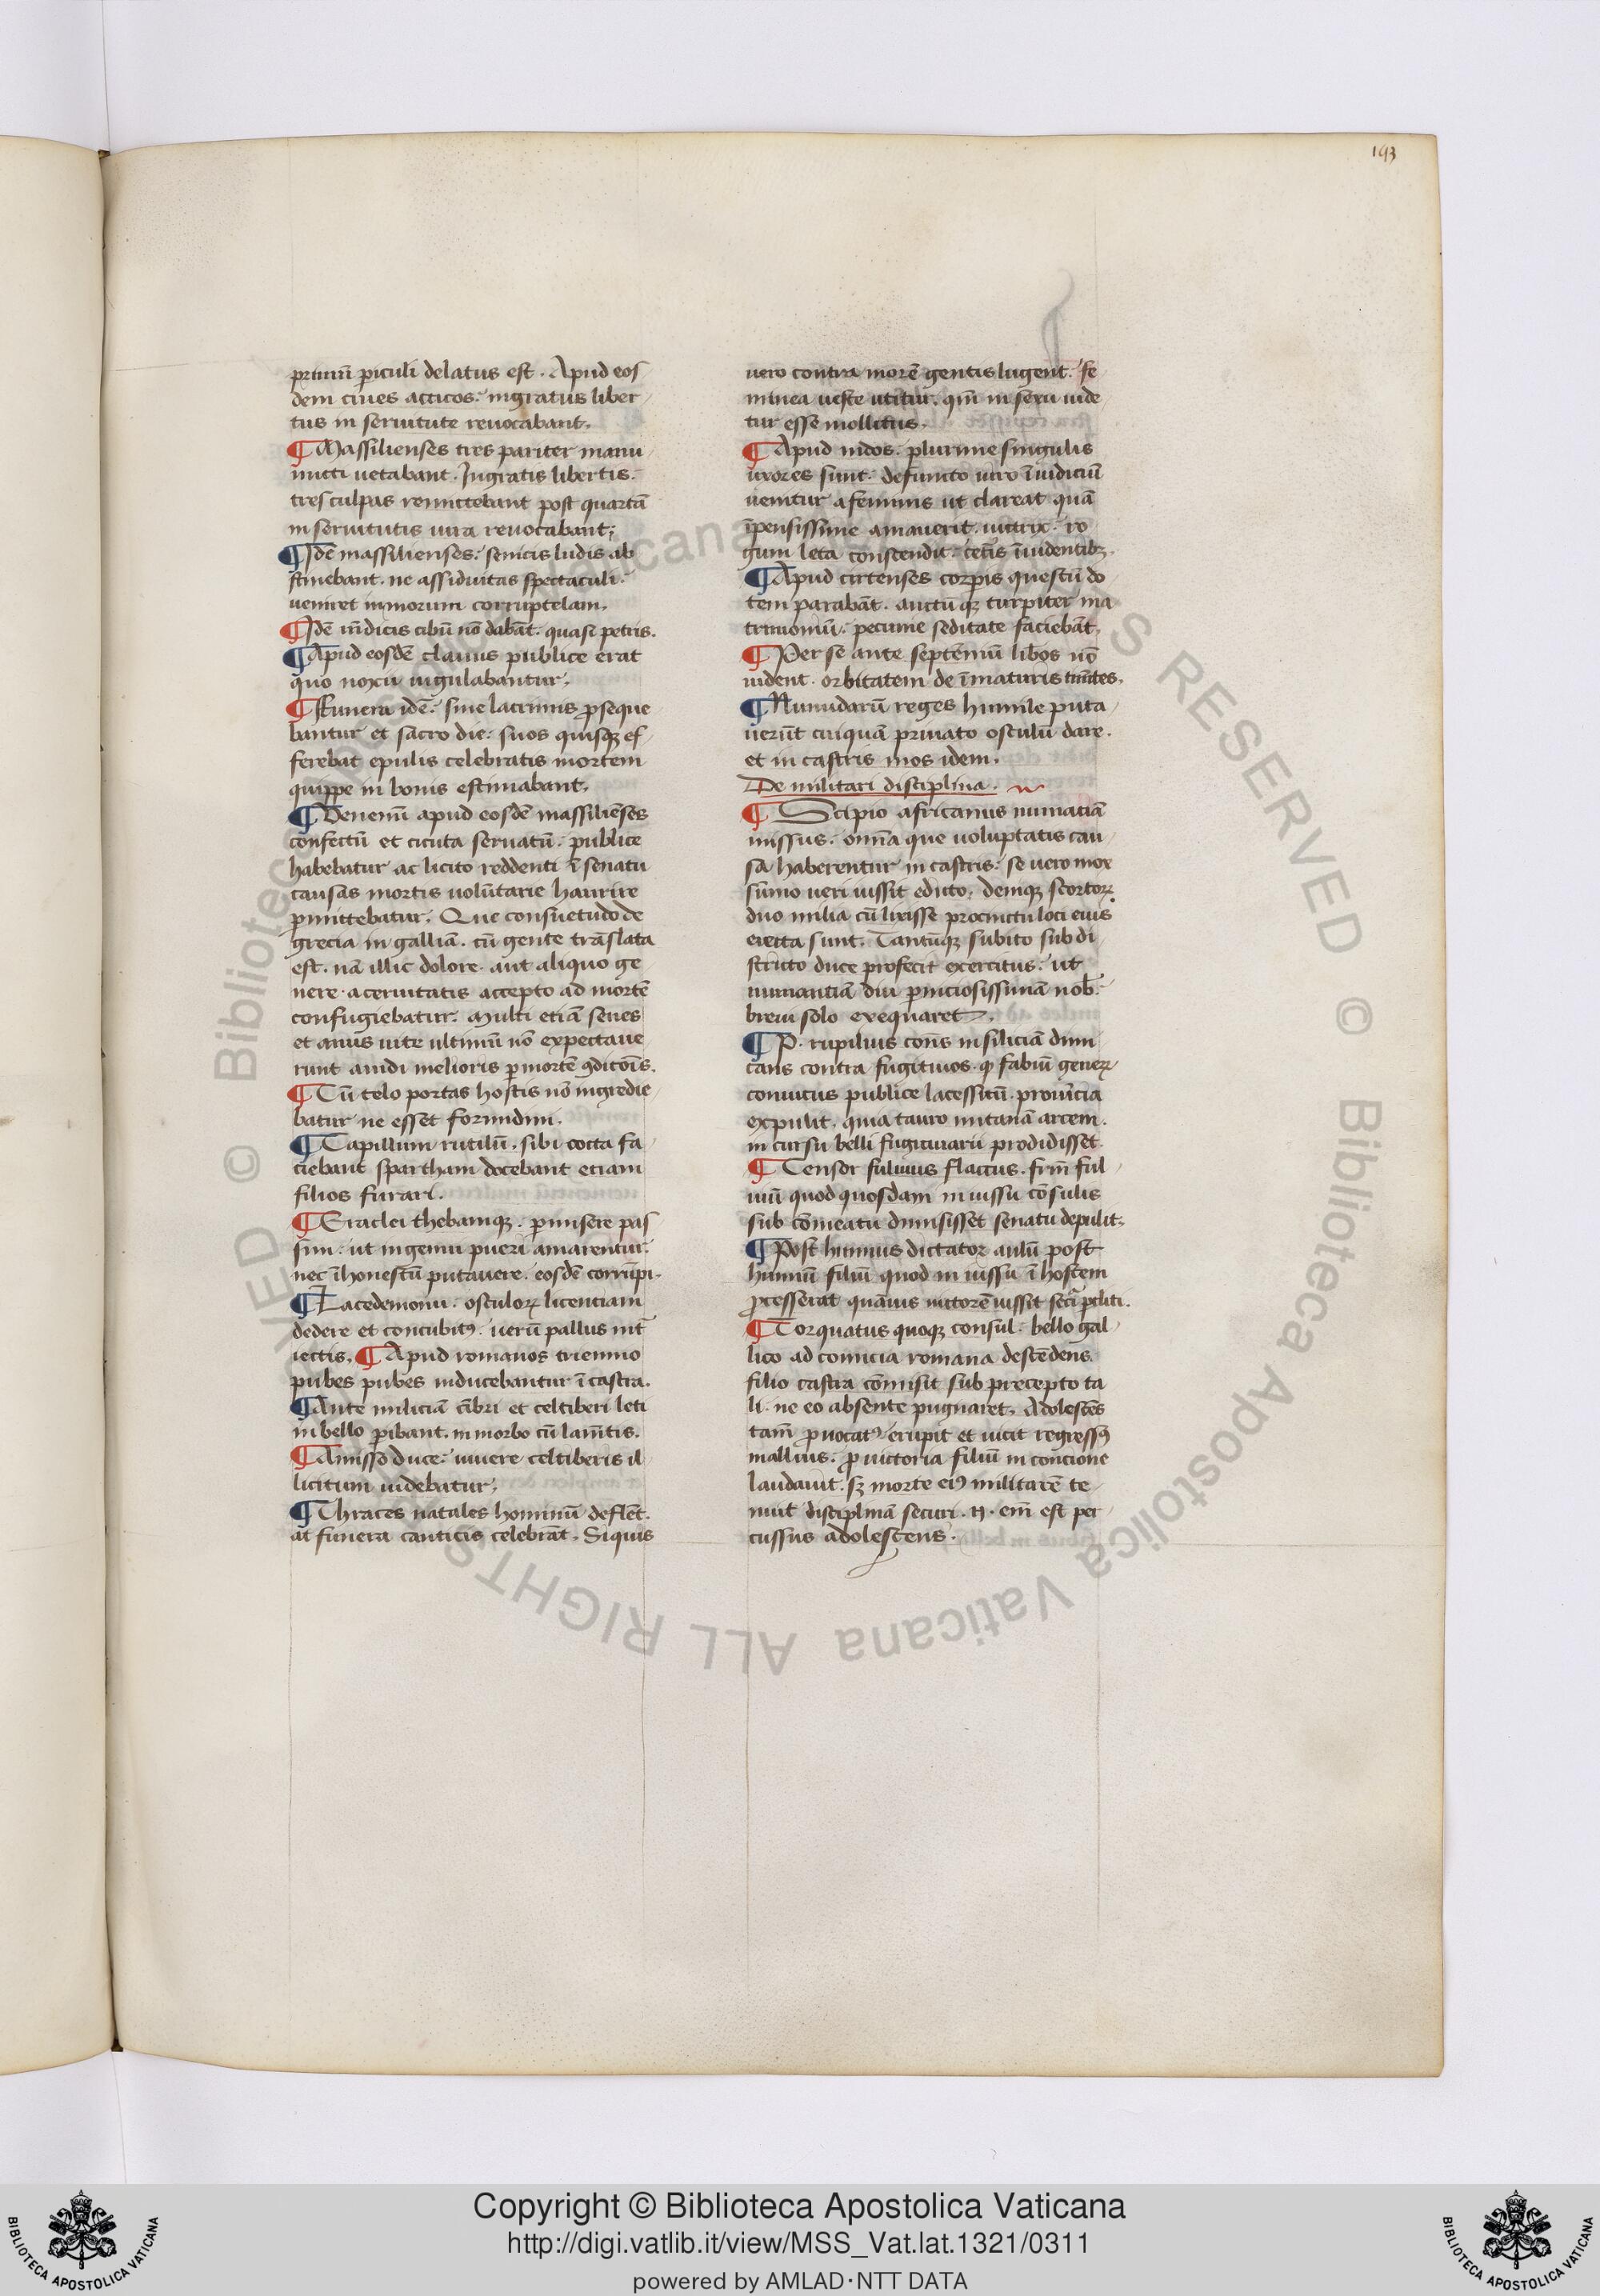 193
primũ ꝑiculi delatus est . Apud eos
dem ciues atticos : ingratus liber
tus in seruitute reuocabant .
¶ Massilienses tres pariter manu
micti uetabant . Ingratis libertis :
tres culpas remittebant post quartã
in seruitutis iura reuocabant ;
¶ Idẽ massilienses : senicis ludis ab
stinebant . ne assiduitas spectaculi :
ueniret in morum corruptelam .
¶ Idẽ mẽdicis cibũ nõ dabãt . quasi petris .
¶ Apud eosdẽ clauus publice erat
quo noxii iugulabantur .
¶ Funera idẽ : sine lacrimis ꝓseque
bantur et sacro die : suos quisqꝫ ef
ferebat epulis celebratis mortem
quippe in bonis estimabant .
¶ Venenũ apud eosdẽ massiliẽses
confectũ et cicuta seruatũ : publice
habebatur ac licito reddenti ĩ senatu
causas mortis uolũtarie haurire
ꝑmittebatur . Que consuetudo de
grecia in galliã . cũ gente trãslata
est . nã illic dolore . aut aliquo ge
nere . aceruitatis accepto ad mortẽ
confugiebatur . Multi etiã senes
et anus uite ultimũ nõ expectaue
runt auidi melioris ꝑ mortẽ ꝯdicõis .
¶ Cũ telo portas hostis nõ ingredie
batur ne esset formidini .
¶ Capillum rutilũ . sibi cocta fa
ciebant spartham docebant etiam
filios furari .
¶ Eraclei thebaniqꝫ . ꝑmisere pas
sim : ut ingenui pueri amarentur .
nec ĩhonestũ putauere . eosdẽ corrũpi .
¶ Lacedemonii . osculoꝝ licenciam
dedere et concubitꝰ . uerũ pallus int̃
iectis . ¶ Apud romanos triennio
pubes pubes inducebantur ĩ castra .
¶ Ante miliciã cĩbri et celtiberi leti
in bello ꝑibant . in morbo cũ lamẽtis .
¶ Amisso duce : uiuere celtiberis il
licitum uidebatur .
¶ Thraces natales hominũ deflẽt .
at funera canticis celebrãt . Siquis
uero contra morẽ gentis lugent : fe
minea ueste utitur . qm̃ in sexu uide
tur esse mollitus .
¶ Apud indos . plurime singulis
uxores sunt : defuncto uiro ĩ iudiciũ
uenitur a feminis ut clareat quã
ĩpensissime amauerit . uictrix : ro
gum leta conscendit : cet̃is ĩuidentibꝫ .
¶ Apud cirtenses corꝑis questũ do
tem parabãt . auctũqꝫ turpiter ma
trimoniũ . pecunie feditate faciebãt .
¶ Perse ante septenniũ libos nõ
uident . orbitatem de ĩmaturis timẽtes .
¶ Numidarũ reges humile puta
uerũt cuiquã priuato osculũ dare .
et in castris mos idem .
De militari disciplina .
¶ Scipio africanus numatiã
missus : omĩa que uoluptatis cau
sa haberentur in castris : se uero mox
sũmo ueri iussit edicto . deniqꝫ scortoꝝ
duo milia cũ lixisse procinctu loci eius
eiecta sunt . Tantũqꝫ subito sub di
stricto duce profecit exercitus : ut
numantiã diu ꝑniciosissimã nob̃ .
breui solo exequaret .
¶ P . rupilius cons̃ in siliciã dimi
cans contra fugitiuos . q̧ fabiũ geneꝝ
conuictus publice lacessitũ . prouĩcia
expulit . quia tauro mitanã arcem .
in cursu belli fugitiuarii prodidisset .
¶ Censor fuluius flaccus . frm̃ ful
uiũ quod quosdam in iussu cõsulis
sub cõmeatu dimisisset senatu depulit .
¶ Post humius dictator aulũ post
humiũ filiũ quod in iussu ĩ hostem
ꝓcesserat quãuis uictorẽ iussit secũ ꝑcuti .
¶ Torquatus quoqꝫ consul : bello gal
lico ad comicia romana descẽdens .
filio castra cõmisit sub precepto ta
li . ne eo absente pugnaret . Adolescẽs
tam̃ ꝓuocatꝰ erupit et uicit regressꝰ
mallius . ꝓ uictoria filiũ in concione
laudauit . sꝫ morte eiꝰ militarẽ te
nuit disciplinã securi . n . em̃ est per
cussus adolescens .
Copyright © Biblioteca Apostolica Vaticana
http://digi.vatlib.it/view/MSS_Vat.lat.1321/0311
powered by AMLAD·NTT DATA